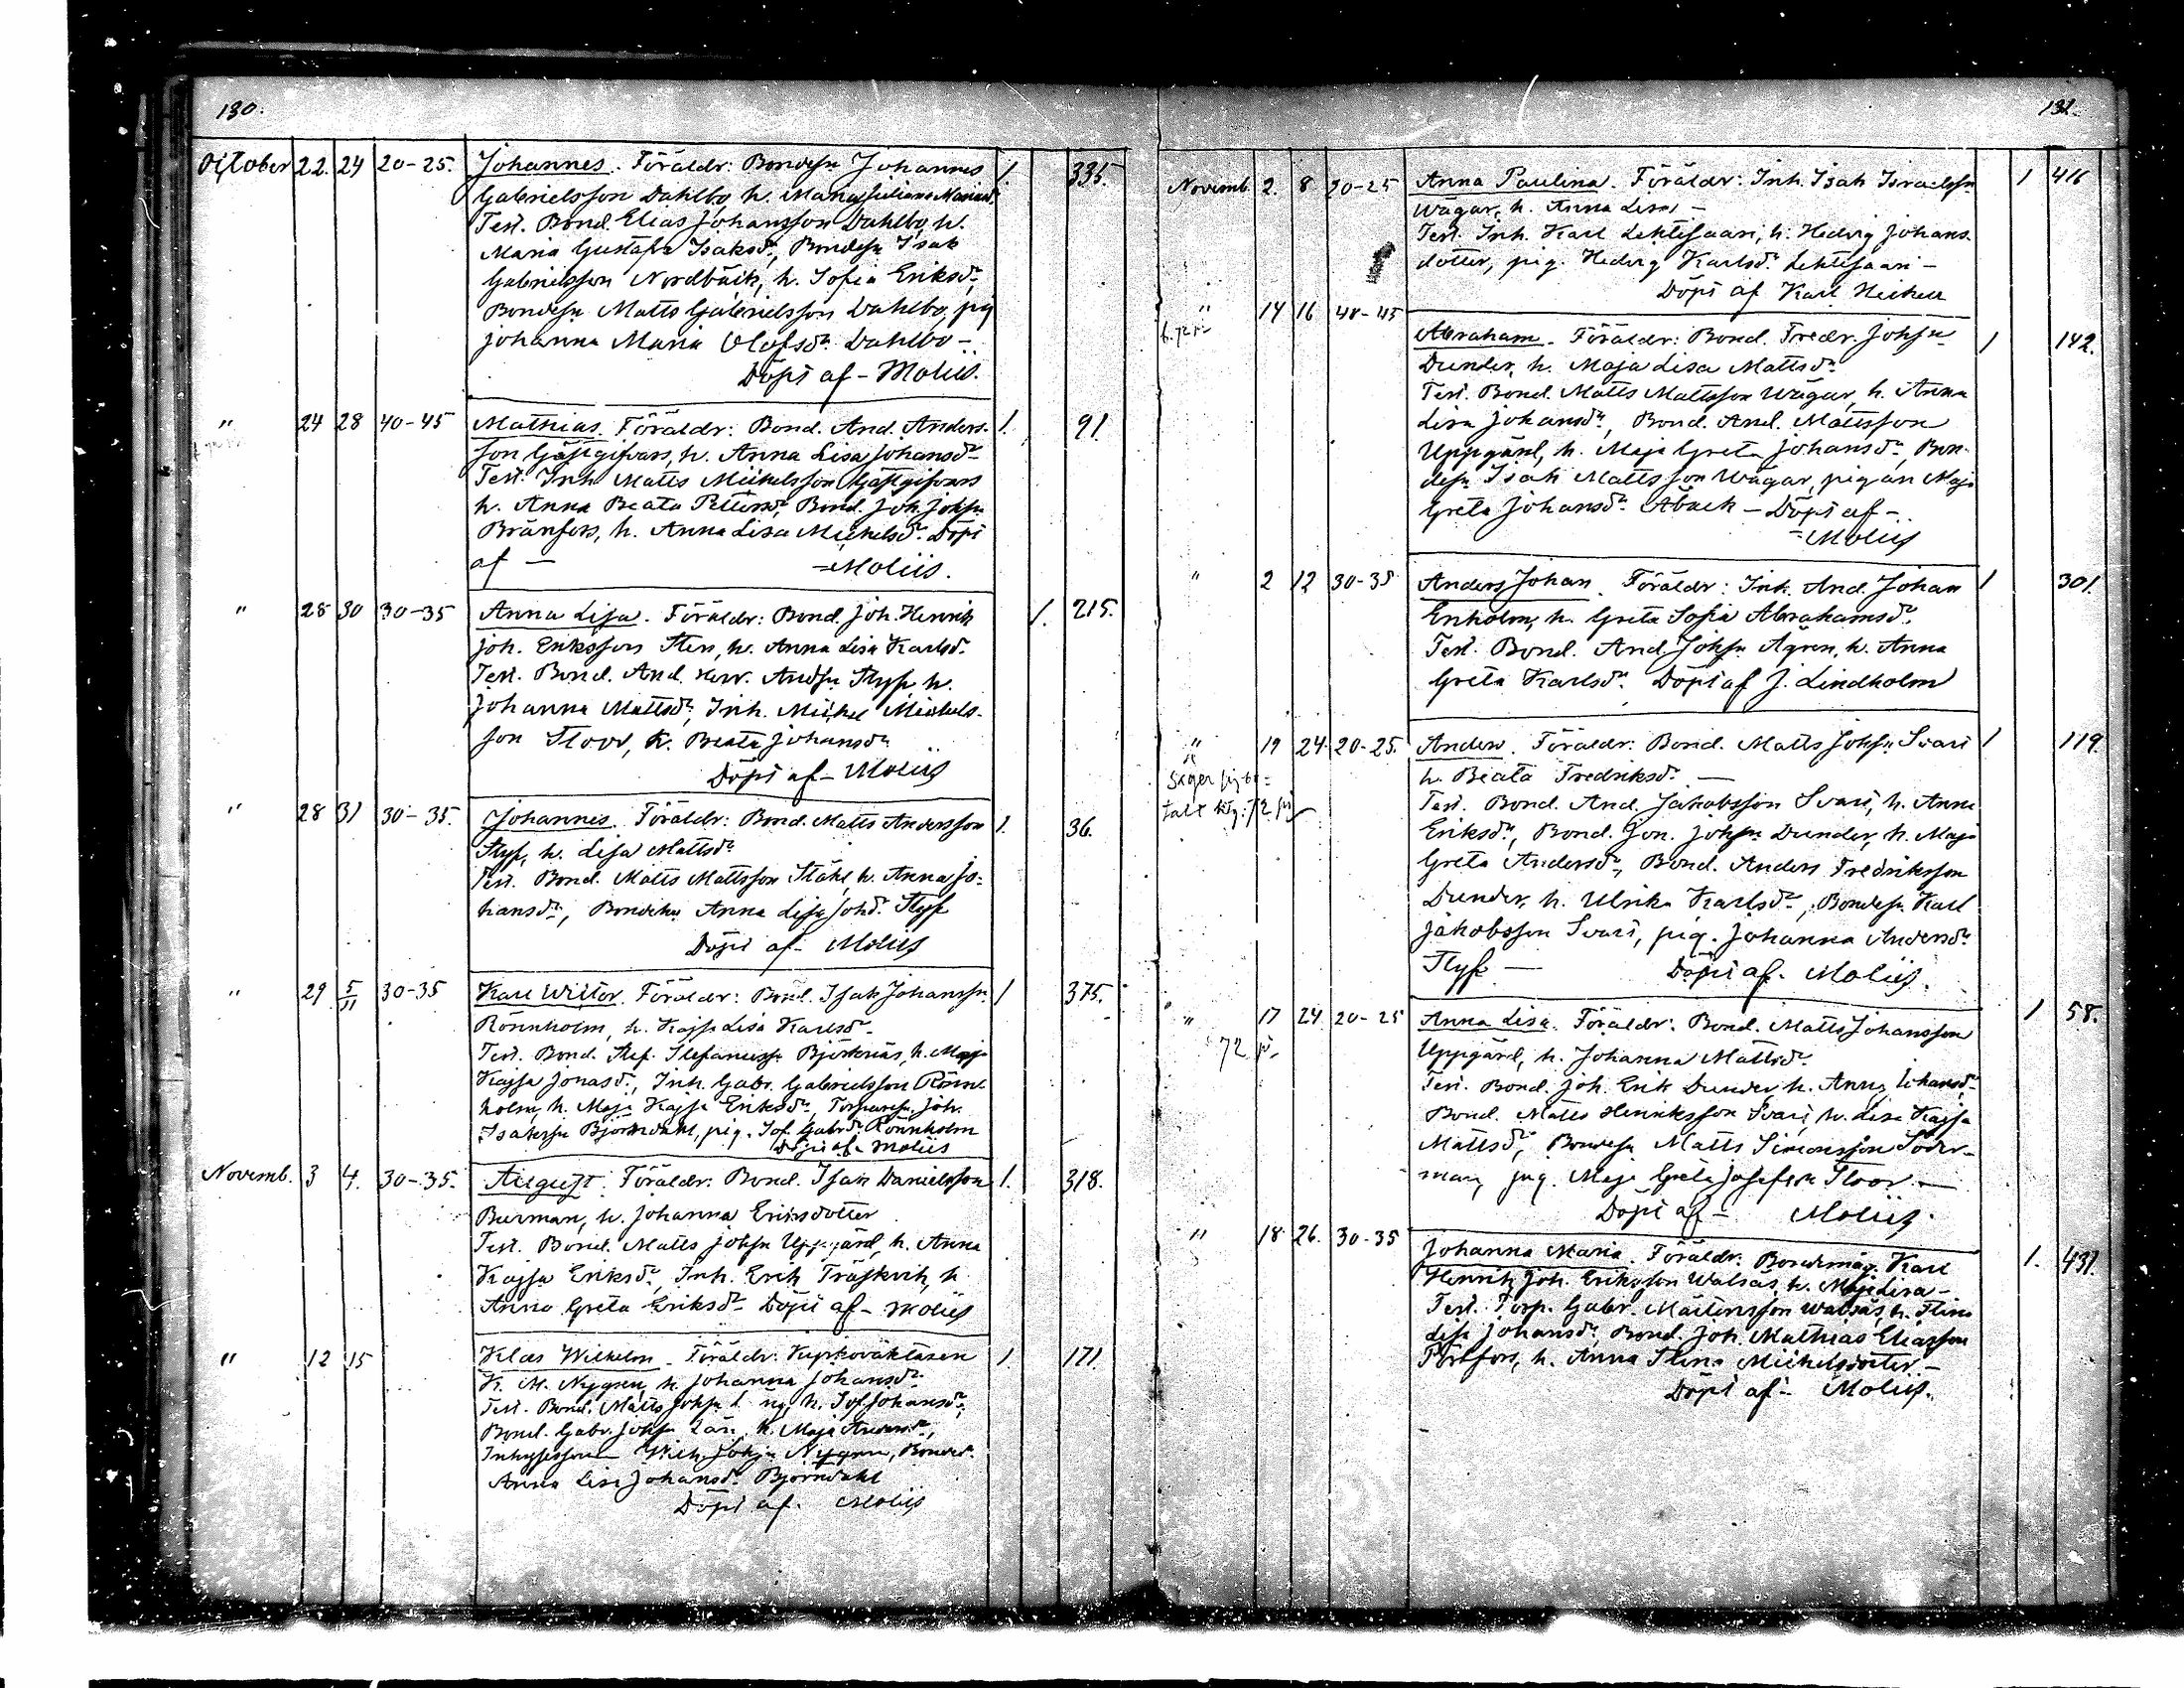 130.
October 22. 24 20-25. Johannes. Föräldr: Bondesn Johannes 1 335.
Gabrielsson Dahlbo, h. Maria Juliana
Test. Bond. Elias Johansson Dahlbo, h.
Maria Gustafva Isaksdr, Bondesn Isak
Gabrielsson Nordbäck, h. Sofia Eriksdr,
Bondesn Matts Gabrielsson Dahlbo, pig
Johanna Maria Olofsdr Dahlbo -
Döpt af - Moliis.
" 24 28 40-45 Mathias. Föräldr: Bond. And. Anders- 1. 91.
son Gästgifvars, h. Anna Lisa Johansdr
Test. Inh. Matts Michelsson Gästgifvars
h. Anna Beata Pettersdr, Bond. Joh. Johsn
Bränfors, h. Anna Lisa Michelsdr. Döpt
af - Moliis.
" 28 30 30-35 Anna Lisa. Föräldr: Bond. Joh. Henrik 1. 215.
Joh. Eriksson Sten, h. Anna Lisa Karlsdr.
Test. Bond. And. Andsn Styf, h.
Johanna Mattsdr, Inh. Michel Michels-
son Stoor, h. Beata Johansdr
Döpt af - Moliis
" 28 31 30-35. Johannes. Föräldr: Bond. Matts Andersson 1. 36.
Styf, h. Lisa Mattsdr
Test. Bond. Matts Mattsson Ståhl, h. Anna Jo-
hansdr, Anna Lisa Johdr. Styf
Döpt af - Moliis
" 29 5/11 30-35 Karl Wiktor. Föräldr: Bond. Isak Johanssn. 1 375.
Rönnholm, h. Kajsa Lisa Karlsdr
Test. Bond. Stef. Stefanussn Björknäs, h. Maja
Kajsa Jonasdr., Inh. Gabr. Gabrielsson Rönn-
holm, h. Maja Kajsa Eriksdr, Torparesn Joh.
Isakssn Björndahl, pig. Sof. Gabrdr. Rönnholm
Döpt af - Moliis
Novemb. 3 4. 30-35. August. Föräldr: Bond. Isak Danielsson 1. 318.
Burman, h. Johanna Eriksdotter
Test. Bond. Matts Johsn Uppgård, h. Anna
Kajsa Eriksdr, Inh. Erik Träskvik, h.
Anna Greta Eriksdr Döpt af - Moliis
" 12 15 Klas Wilhelm. Föräldr: Kyrkoväktaren 1. 171.
K. M. Nygren, h. Johanna Johansdr.
Test. Bond. Matts Johsn h. Sof. Johansdr,
Bond. Gabr. Johsn h. Maja Andersdr,
Wilh. Johsn Nygren, Bonded.
Anna Lisa Johansdr. Björndahl
Döpt af - Moliis
131.
Novemb. 2. 8 20-25 Anna Paulina. Föräldr: Inh. Isak Israelssn 1 416
Wägar, h. Anna Lisa -
Test. Inh. Karl Lehtisaari, h. Hedvig Johans-
dotter, pig. Hedvig Karlsdr. Lehtisaari -
Döpt af Karl Heikell
" 14 16 40-45
Abraham. Föräldr: Bond. Fredr. Johsn 1 142.
Dunder, h. Maja Lisa Mattsdr
Test. Bond. Matts Mattsson Wägar, h. Anna
Lisa Johansdr, Bond. And. Mattsson
Uppgård, h. Maja Greta Johansdr, Bon-
desn Isak Mattsson Wägar, pigan Maja
Greta Johansdr. Åback - Döpt af -
- Moliis
" 2 12 30-35 Anders Johan. Föräldr: Inh. And. Johan 1 301.
Enholm, h. Greta Sofia Abrahamsdr.
Test. Bond. And. Johsn Ågren, h. Anna
Greta Karlsdr. Döpt af J. Lindholm
" 19 24. 20-25. Anders. Föräldr: Bond. Matts Johsn Svari 1 119.
Säger sig be-
talt 72 pi
h. Beata Fredriksdr. -
Test. Bond. And. Jakobsson Svari, h. Anna
Eriksdr, Bond. Jon. Johsn Dunder, h. Maja
Greta Andersdr., Bond. Anders Fredriksson
Dunder, h. Ulrika Karlsdr, Bondesn Karl
Jakobsson Svari, pig. Johanna Andersdr
Styf - Döpt af - Moliis.
" 17 24 20-25 Anna Lisa. Föräldr: Bond. Matts Johansson 1 58.
72 pi
Uppgård, h. Johanna Mattsdr
Test. Bond. Joh. Erik Dunder, h. Anna Johansdr.
Bond. Matts Henriksson Svari, h. Lisa Kajsa
Mattsdr, Bondesn Matts Simonsson Söder-
man, pig. Maja Greta Josefsdr Stoor. -
Döpt af - Moliis.
" 18 26. 30-35 Johanna Maria. Föräldr: Bondemåg. Karl 1. 431.
Henrik Joh. Eriksson Walsäs, h. Maja Lisa -
Test. Torp. Gabr. Mårtensson Walsäs, h. Stina
Lisa Johansdr, Bond. Joh. Mathias Eliasson
h. Anna Stina Michelsdotter -
Döpt af - Moliis.